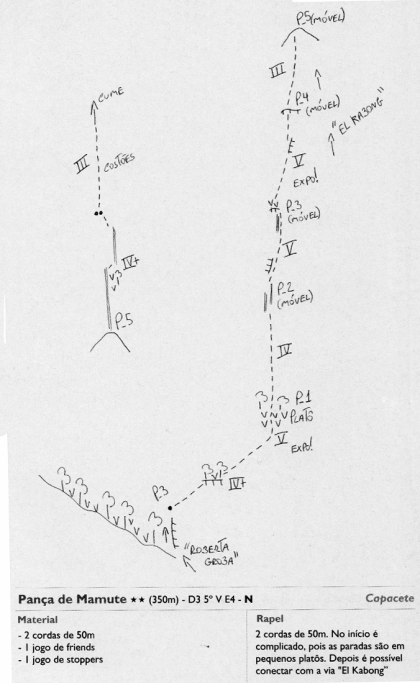 P_5 (MÓVEL)
III
P_4
(MÓVEL)
"EL KABONG"
V
EXPO!
P_3
(MÓVEL)
V
P_2
(MÓVEL)
IV
P_1
PLATÔ
V
EXPO!
IV+
P.3
"ROBERTA
GROBA"
CUME
III
COSTÕES
IV+
P_5
Pança de Mamute ★★ (350m) - D3 5° V E4 - N
Capacete
Material
- 2 cordas de 50m
- 1 jogo de friends
- 1 jogo de stoppers
Rapel
2 cordas de 50m. No início é
complicado, pois as paradas são em
pequenos platôs. Depois é possível
conectar com a via "El Kabong"